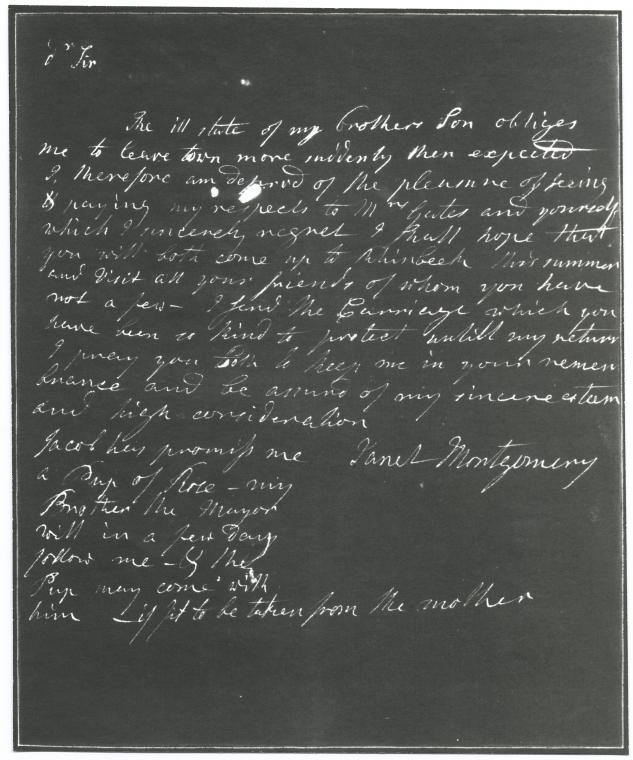 Dr Sir
The ill state of my brothers Son obliges
me to leave town more suddenly then expected
I therefore am deprivd of the pleasure of seeing
& paying my respects to Mrs Gates and yourself
which I sincerely regret I shall hope that
you will both come up to Rhinbeck this summer
and visit all your friends of whom you have
not a few - I send the Carriage which you
have been so kind to protect untill my return
I pray you both to keep me in your remem
brance and be assurd of my sincere esteem
and high consideration
Janet Montgomery
Jacob has promiss me
a Pup of Rose - my
Brother the Mayor
will in a few days
follow me - & the
Pup may come with
him - if fit to be taken from the mother